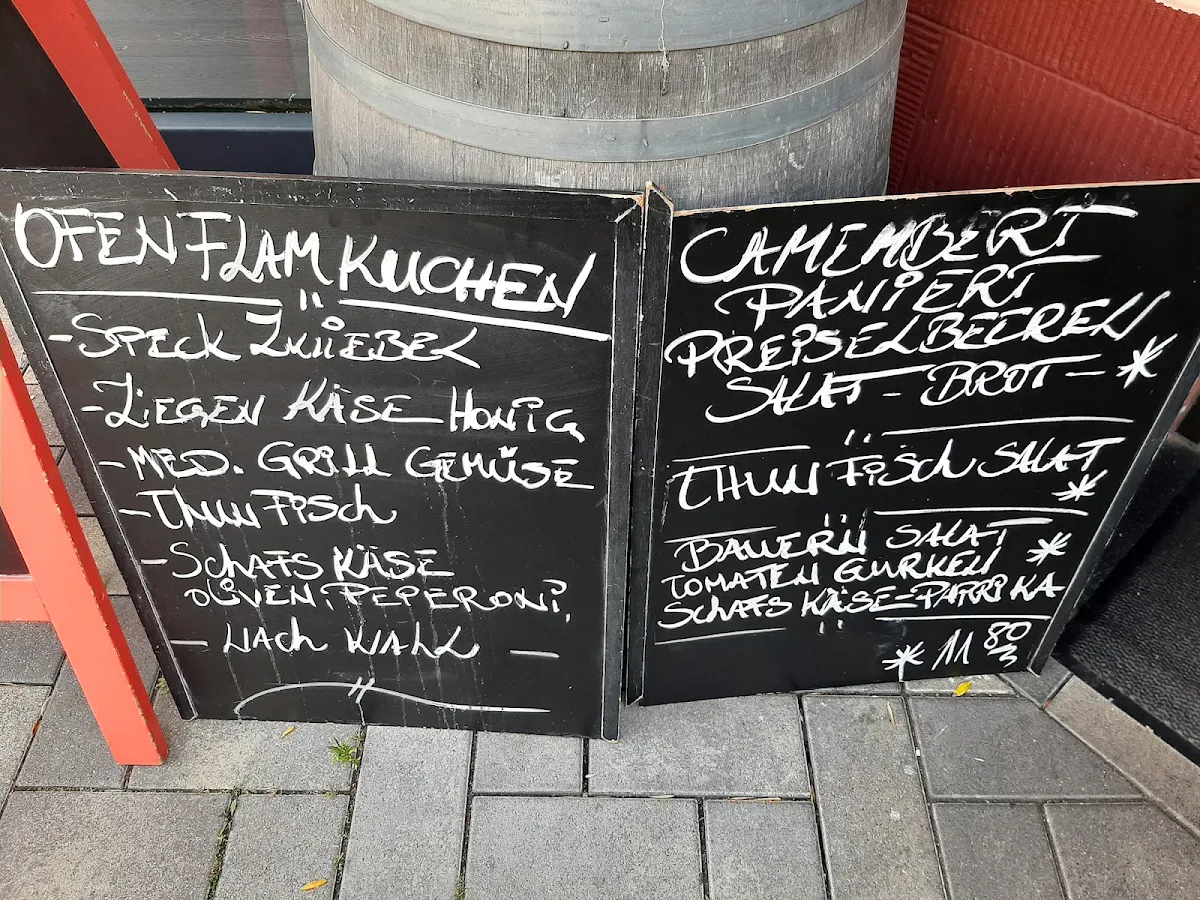 OFEN FLAM KUCHEN
- SPECK ZWIEBEL
- ZIEGEN KÄSE HONIG
- MED. GRILL GEMÜSE
- THUNFISCH
- SCHAFS KÄSE
OLIVEN, PEPERONI,
- NACH WAHL -
CAMEMBERT
PANIERT
PREISELBEEREN
SALAT - BROT - *
THUNFISCH SALAT
*
BAUERN SALAT *
TOMATEN GURKEN
SCHAFS KÄSE-PAPRIKA
* 11 80